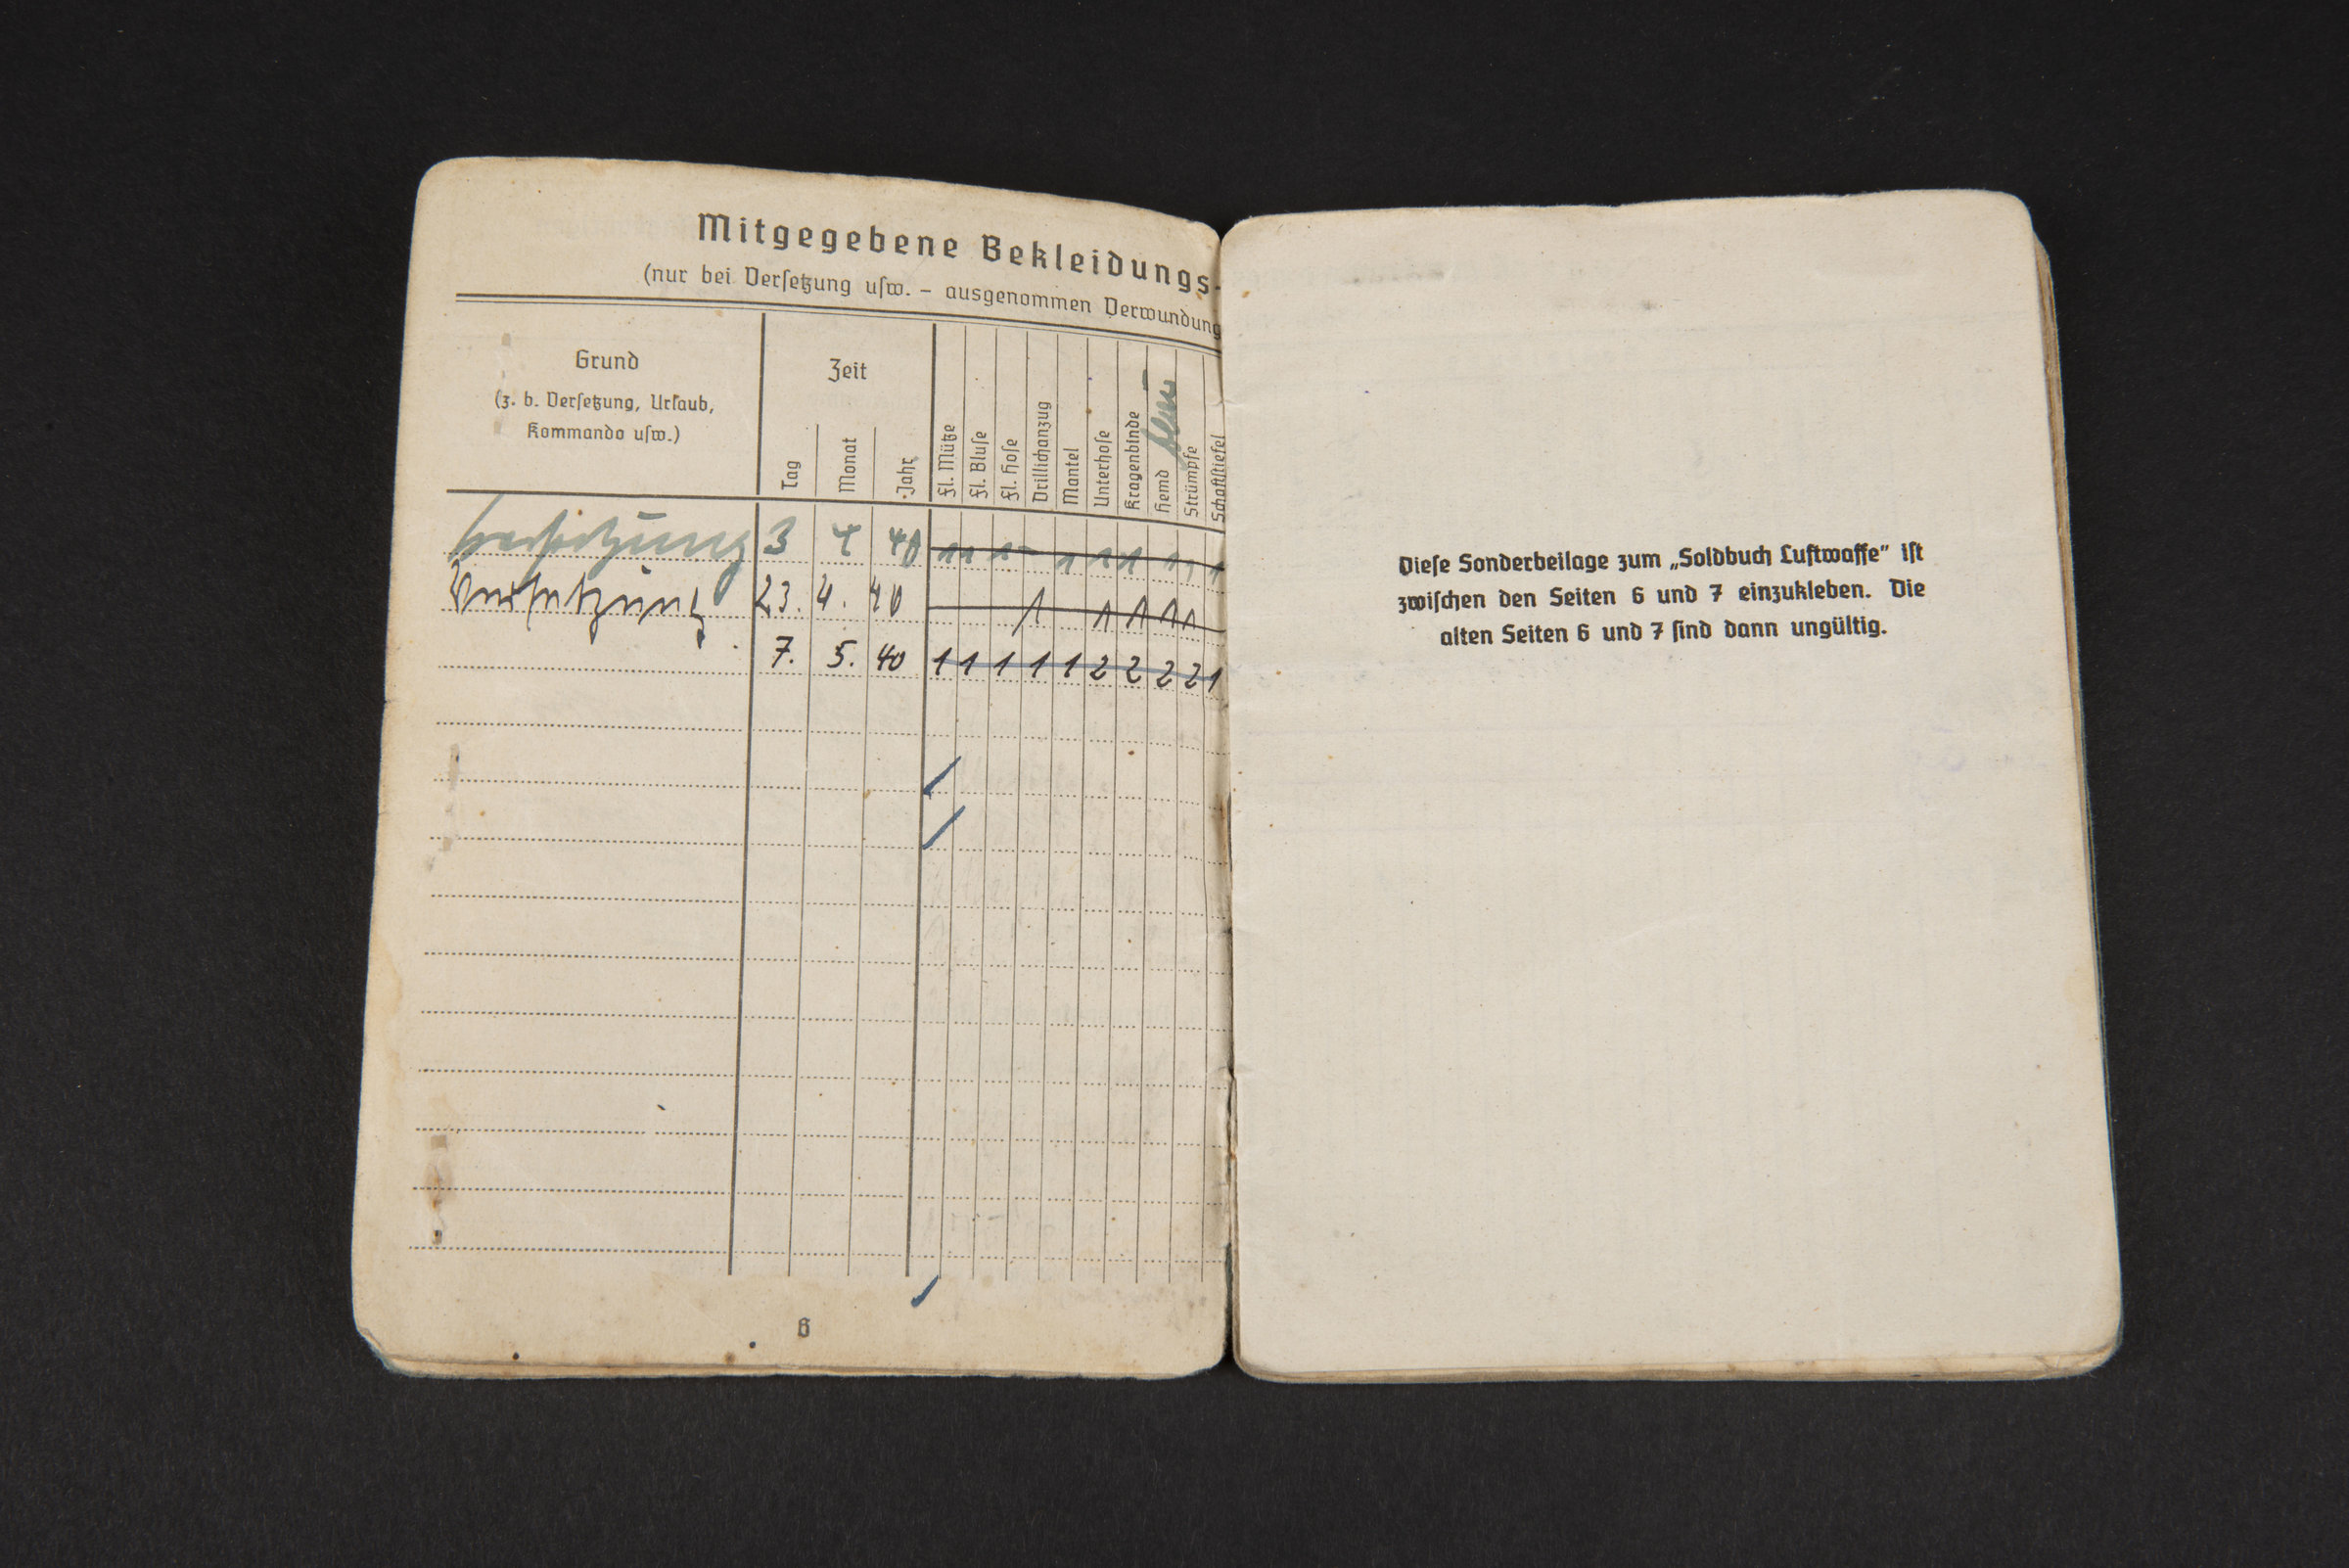 Mitgegebene Bekleidungs-
(nur bei Versetzung usw. – ausgenommen Verwundung
Grund
(z. b. Versetzung, Urlaub,
Kommando usw.)
Zeit
Tag
Monat
Jahr
Fl. Mütze
Fl. Bluse
Fl. Hose
Drillichanzug
Mantel
Unterhose
Kragenbinde
Hemd
Strümpfe
Schaftstiefel
Versetzung 3 4 40 1 1 1 - 1 1 1 1 1 1
Versetzung 23. 4. 40 1 1 1 1 1
7. 5. 40 1 1 1 1 1 2 2 2 2 1
6
Diese Sonderbeilage zum „Soldbuch Luftwaffe" ist
zwischen den Seiten 6 und 7 einzukleben. Die
alten Seiten 6 und 7 sind dann ungültig.